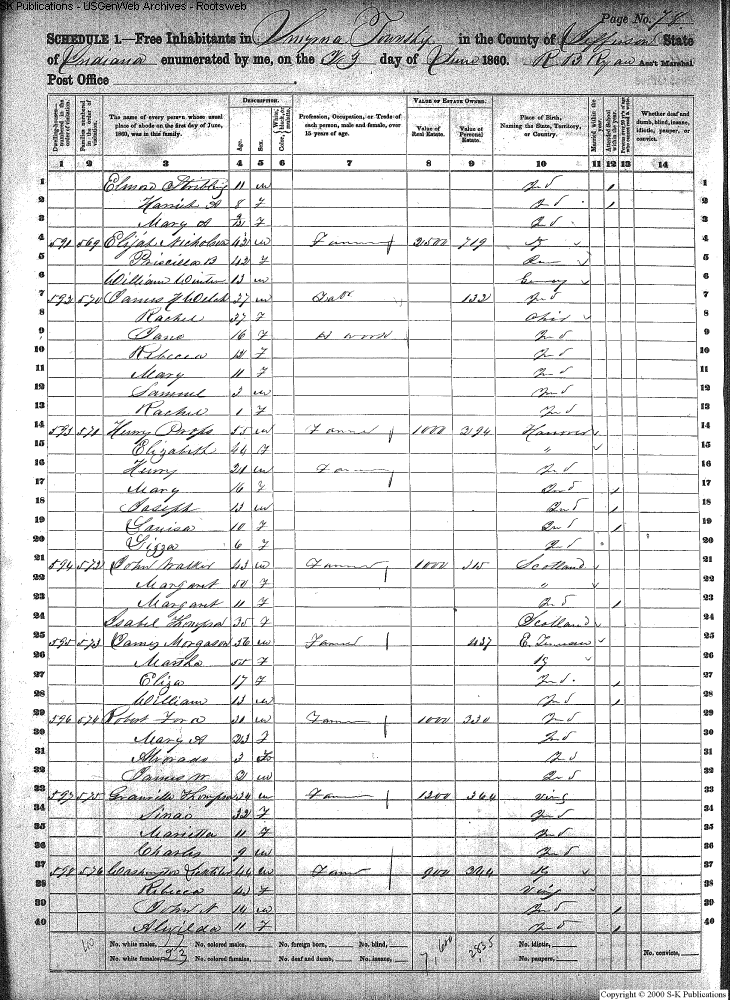 SK Publications - USGenWeb Archives - Rootsweb
Page No. 78
SCHEDULE 1.—Free Inhabitants in Smyrna Township in the County of Jefferson State
of Indiana enumerated by me, on the day of June 1860. R B Ryan Ass't Marshal
Post Office
DESCRIPTION. VALUE OF ESTATE OWNED.
Dwelling-houses—numbered in the order of visitation.
Families numbered in the order of visitation.
The name of every person whose usual place of abode on the first day of June, 1860, was in this family.
Age. Sex. Color, White, black, or mulatto.
Profession, Occupation, or Trade of each person, male and female, over 15 years of age.
Value of Real Estate. Value of Personal Estate.
Place of Birth, Naming the State, Territory, or Country.
Married within the year. Attended School within the year.
Whether deaf and dumb, blind, insane, idiotic, pauper, or convict.
1 2 3 4 5 6 7 8 9 10 11 12 13 14
1 Elmore Stribling 11 m Ind 1 1
2 Harriet A 8 f Ind 1 2
3 Mary A f Ind 3
4 591 569 Elijah Nicholson 42 m Farmer 2500 719 Ky 4
5 Priscilla B 42 f 5
6 William Winton 13 m 6
7 592 570 James Welch 37 m 132 Ind 7
8 Rachel 37 f Ohio 8
9 Jane 16 f Ind 9
10 Rebecca 12 f Ind 10
11 Mary 11 f Ind 11
12 Samuel 3 m Ind 12
13 Rachel 1 f Ind 13
14 593 571 Henry Props 55 m Farmer 1000 394 Hanover 14
15 Elizabeth 44 f " 15
16 Henry 21 m Farmer Ind 16
17 Mary 16 f Ind 1 17
18 Joseph 13 m Ind 1 18
19 Louisa 10 f Ind 1 19
20 6 f Ind 20
21 594 572 John Walker 43 m Farmer 1000 315 Scotland 21
22 Margaret 50 f " 22
23 Margaret 11 f Ind 1 23
24 Isabel Thompson 35 f Scotland 24
25 595 573 James Morgason 56 m Farmer 437 E. Tennessee 25
26 Martha 55 f Ky 26
27 Eliza 17 f Ind 1 27
28 William 13 m Ind 1 28
29 596 574 Robert Ford 31 m Farmer 1000 330 Ind 29
30 Mary A 23 f Ind 30
31 Alvorado 3 Ind 31
32 James W. 2 m Ind 32
33 597 575 Granville Thompson 34 m Farmer 1200 364 Virg 33
34 32 f Ind 34
35 Marietta 11 f Ind 35
36 Charles 9 m Ind 36
37 598 576 Washington 44 m Farmer 900 Ky 37
38 Rebecca 43 f Virg 38
39 John N 14 m Ind 1 39
40 Alwilda 11 f Ind 1 40
40 No. white males, 17 No. colored males, No. foreign born, No. blind, 7,600 2835 No. idiotic,
No. white females, 23 No. colored females, No. deaf and dumb, No. insane, No. paupers, No. convicts,
Copyright © 2000 S-K Publications